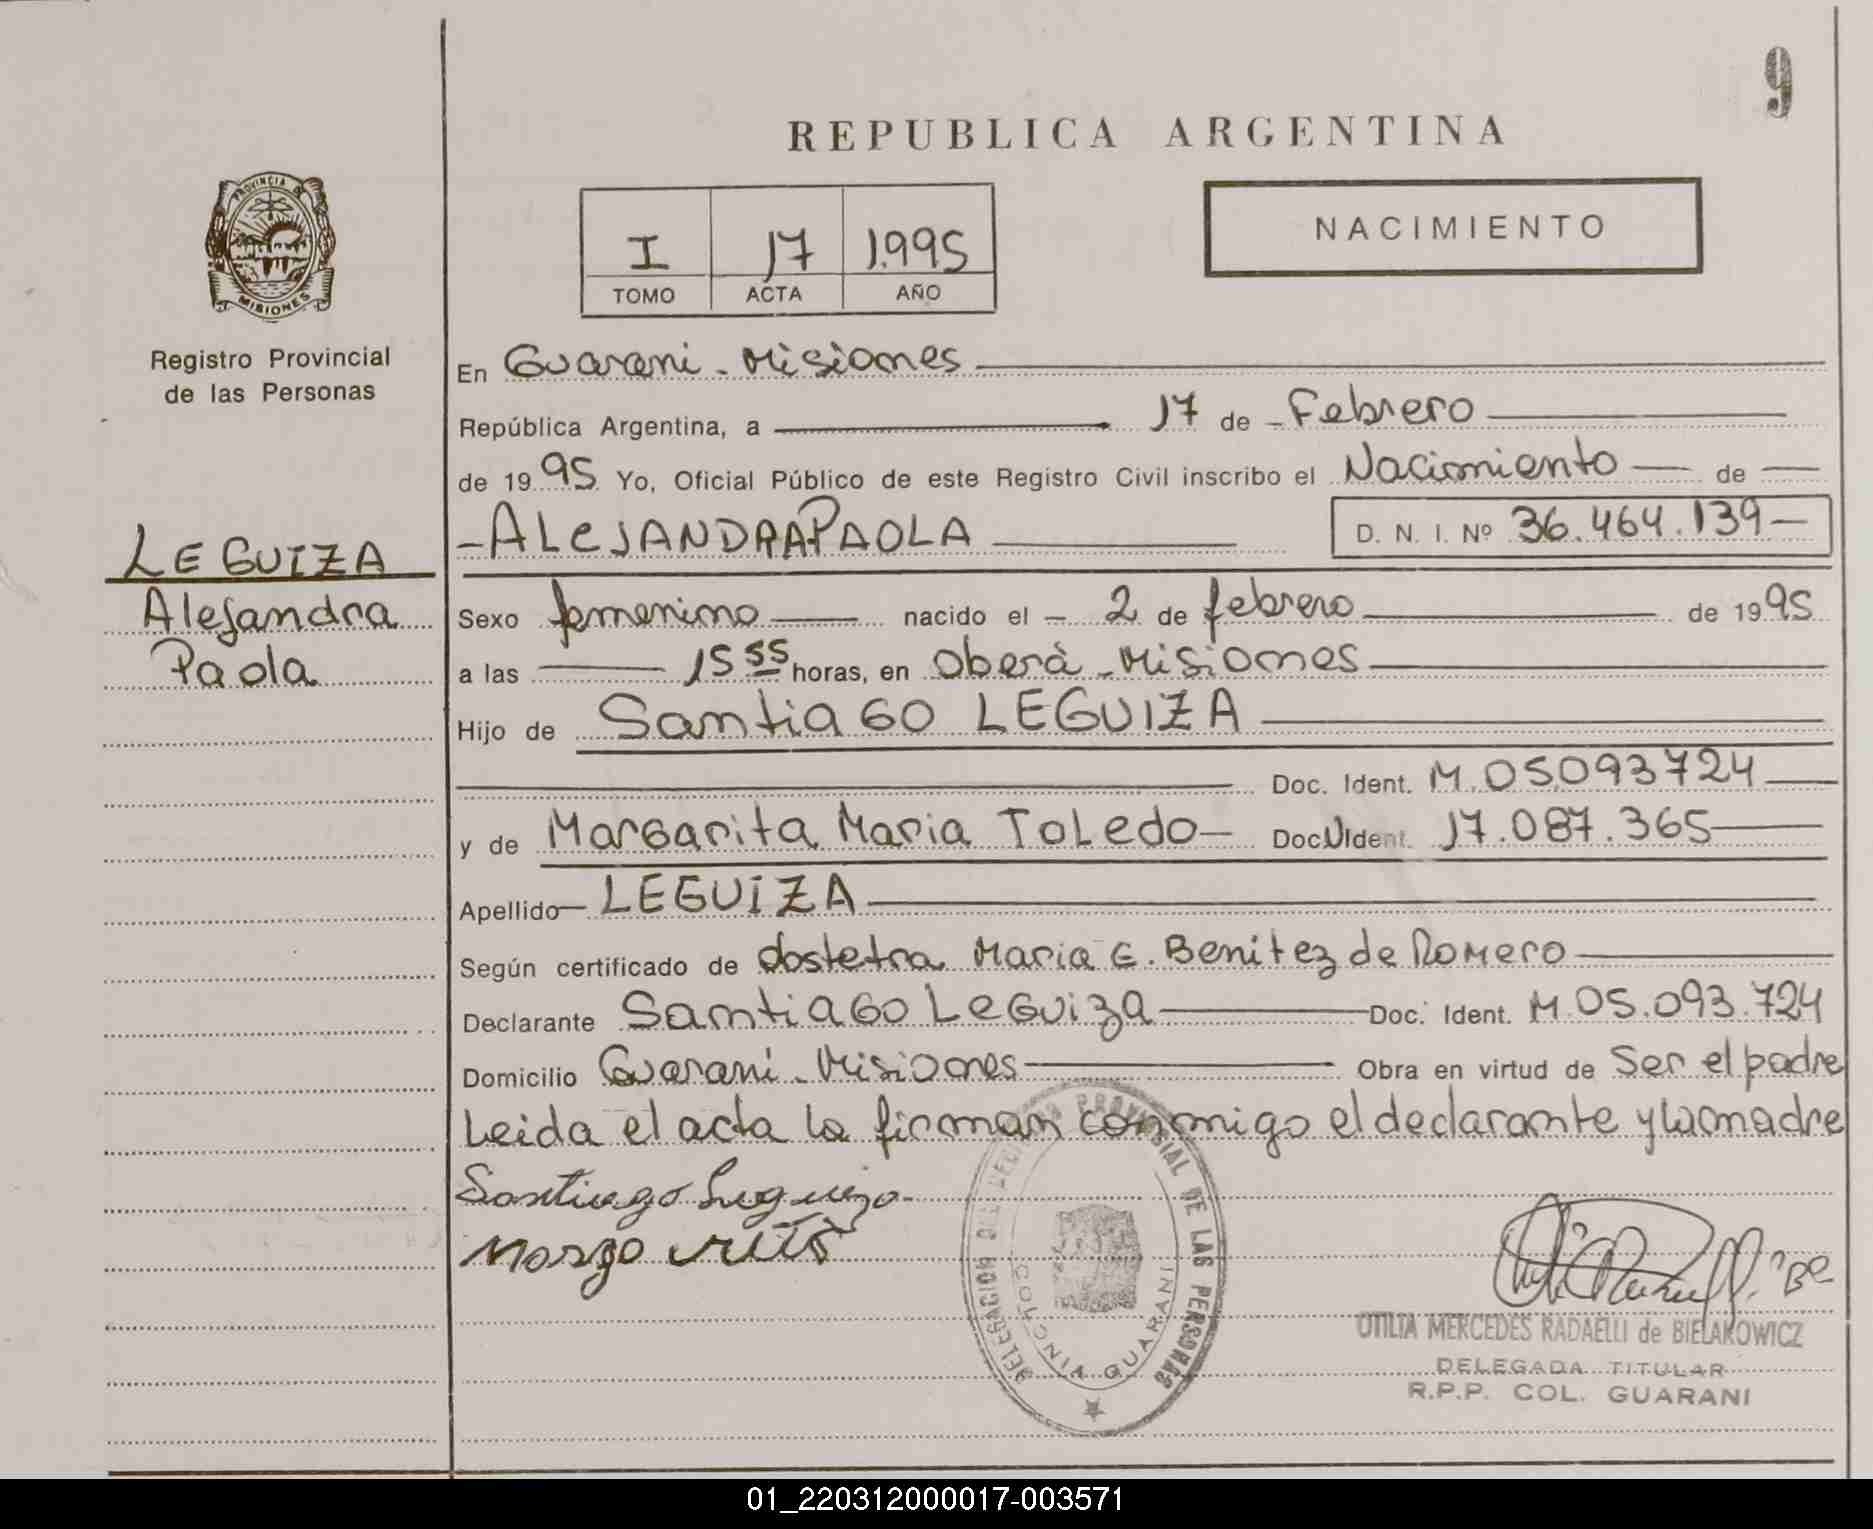 9
REPUBLICA ARGENTINA
PROVINCIA DE
MISIONES
I 17 1.995
TOMO ACTA AÑO
NACIMIENTO
Registro Provincial
de las Personas
LEGUIZA
Alejandra
Paola
En Guarani - Misiones
República Argentina, a 17 de - Febrero
de 1995 Yo, Oficial Público de este Registro Civil inscribo el Nacimiento de
- ALEJANDRA PAOLA D. N. I. Nº 36.464.139 -
Sexo femenino nacido el - 2 de febrero de 1995
a las 15 55 horas, en Oberà - Misiones
Hijo de Santiago LEGUIZA
Doc. Ident. M. 05.093724
y de Margarita Maria Toledo - Doc. U Ident. 17.087.365
Apellido - LEGUIZA
Según certificado de obstetra Maria E. Benitez de Romero
Declarante Santiago Leguiza Doc. Ident. M 05.093.724
Domicilio Guarani - Misiones Obra en virtud de Ser el padre
Leida el acta la firman conmigo el declarante y la madre
Santiago Leguiza
DELEGACION DEL REGISTRO PROVINCIAL DE LAS PERSONAS
COLONIA GUARANI
OTILIA MERCEDES RADAELLI de BIELAKOWICZ
DELEGADA TITULAR
R.P.P. COL. GUARANI
01_220312000017-003571